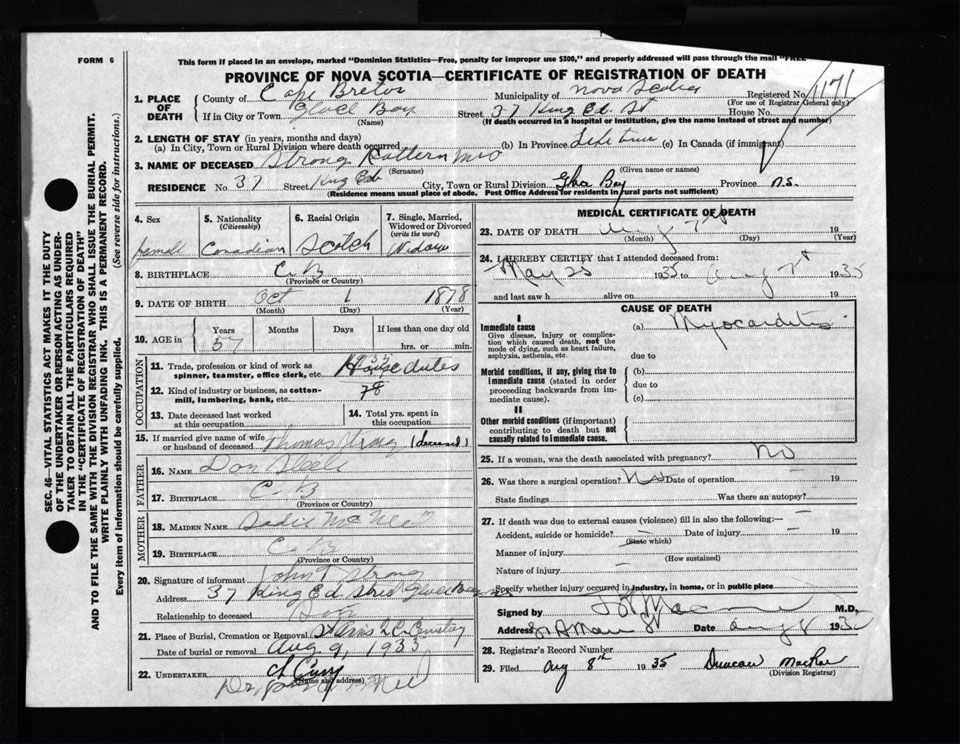 FORM 6
This form if placed in an envelope, marked "Dominion Statistics—Free, penalty for improper use $300," and properly addressed will pass through the mail "FREE
PROVINCE OF NOVA SCOTIA—CERTIFICATE OF REGISTRATION OF DEATH
1171
1. PLACE OF DEATH County of Cape Breton Municipality of Nova Scotia Registered No.
(For use of Registrar General only)
If in City or Town Glace Bay Street 37 King Ed. St House No.
(Name) (If death occurred in a hospital or institution, give the name instead of street and number)
2. LENGTH OF STAY (in years, months and days)
(a) In City, Town or Rural Division where death occurred (b) In Province Life time (c) In Canada (if immigrant)
3. NAME OF DECEASED Strong Mrs
(Surname) (Given name or names)
RESIDENCE No 37 Street King Ed City, Town or Rural Division Glace Bay Province N.S.
(Residence means usual place of abode. Post Office Address for residents in rural parts not sufficient)
4. Sex 5. Nationality (Citizenship) 6. Racial Origin 7. Single, Married, Widowed or Divorced (write the word)
Female Canadian Scotch Widow
8. BIRTHPLACE C. B
(Province or Country)
9. DATE OF BIRTH Oct 1 1878
(Month) (Day) (Year)
10. AGE in Years Months Days If less than one day old
57 hrs. or min.
OCCUPATION
11. Trade, profession or kind of work as spinner, teamster, office clerk, etc. House duties
1935
12. Kind of industry or business, as cotton-mill, lumbering, bank, etc. 78
13. Date deceased last worked at this occupation 14. Total yrs. spent in this occupation
15. If married give name of wife or husband of deceased Thomas Strong (deceased)
FATHER
16. NAME Dan Steele
17. BIRTHPLACE C. B
(Province or Country)
MOTHER
18. MAIDEN NAME Sadie McNeil
19. BIRTHPLACE C. B.
(Province or Country)
20. Signature of informant John T Strong
Address 37 King Ed Street Glace Bay
Relationship to deceased Son
21. Place of Burial, Cremation or Removal Cemetery
Date of burial or removal Aug 9, 1935
22. UNDERTAKER Curry
(Name and address)
MEDICAL CERTIFICATE OF DEATH
23. DATE OF DEATH Aug 7th 19
(Month) (Day) (Year)
24. I HEREBY CERTIFY that I attended deceased from:
May 25 1935 to Aug 7th 1935
and last saw h alive on 19
CAUSE OF DEATH
I
Immediate cause (a) Myocarditis
Give disease, injury or complication which caused death, not the mode of dying, such as heart failure, asphyxia, asthenia, etc.
due to
Morbid conditions, if any, giving rise to immediate cause (stated in order proceeding backwards from immediate cause).
(b)
due to
(c)
II
Other morbid conditions (if important) contributing to death but not causally related to immediate cause.
25. If a woman, was the death associated with pregnancy? No
26. Was there a surgical operation? No Date of operation 19
State findings Was there an autopsy?
27. If death was due to external causes (violence) fill in also the following:—
Accident, suicide or homicide? Date of injury 19
(State which)
Manner of injury
(How sustained)
Nature of injury
Specify whether injury occurred in industry, in home, or in public place
Signed by M.D,
Address Main St Date Aug 8 193
28. Registrar's Record Number
29. Filed Aug 8th 1935 Duncan MacRae
(Division Registrar)
SEC. 46—VITAL STATISTICS ACT MAKES IT THE DUTY
OF THE UNDERTAKER OR PERSON ACTING AS UNDER-
TAKER TO OBTAIN ALL THE PARTICULARS REQUIRED
IN THE "CERTIFICATE OF REGISTRATION OF DEATH"
AND TO FILE THE SAME WITH THE DIVISION REGISTRAR WHO SHALL ISSUE THE BURIAL PERMIT.
WRITE PLAINLY WITH UNFADING INK. THIS IS A PERMANENT RECORD.
Every item of information should be carefully supplied. (See reverse side for instructions.)